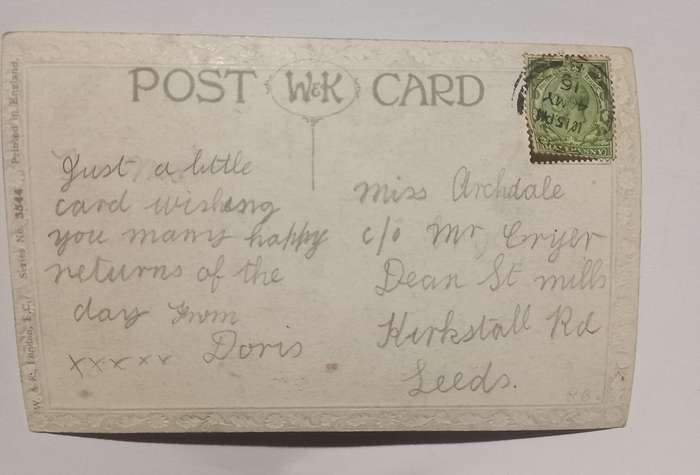 POST W&K CARD
Just a little
card wishing
you many happy
returns of the
day From
Doris
xxxxx
Miss Archdale
c/o Mr Cryer
Dean St mills
Kirkstall Rd
Leeds.
W. & K., London, E.C. Series No. 3544 Printed in England.
15 PM
MY
15